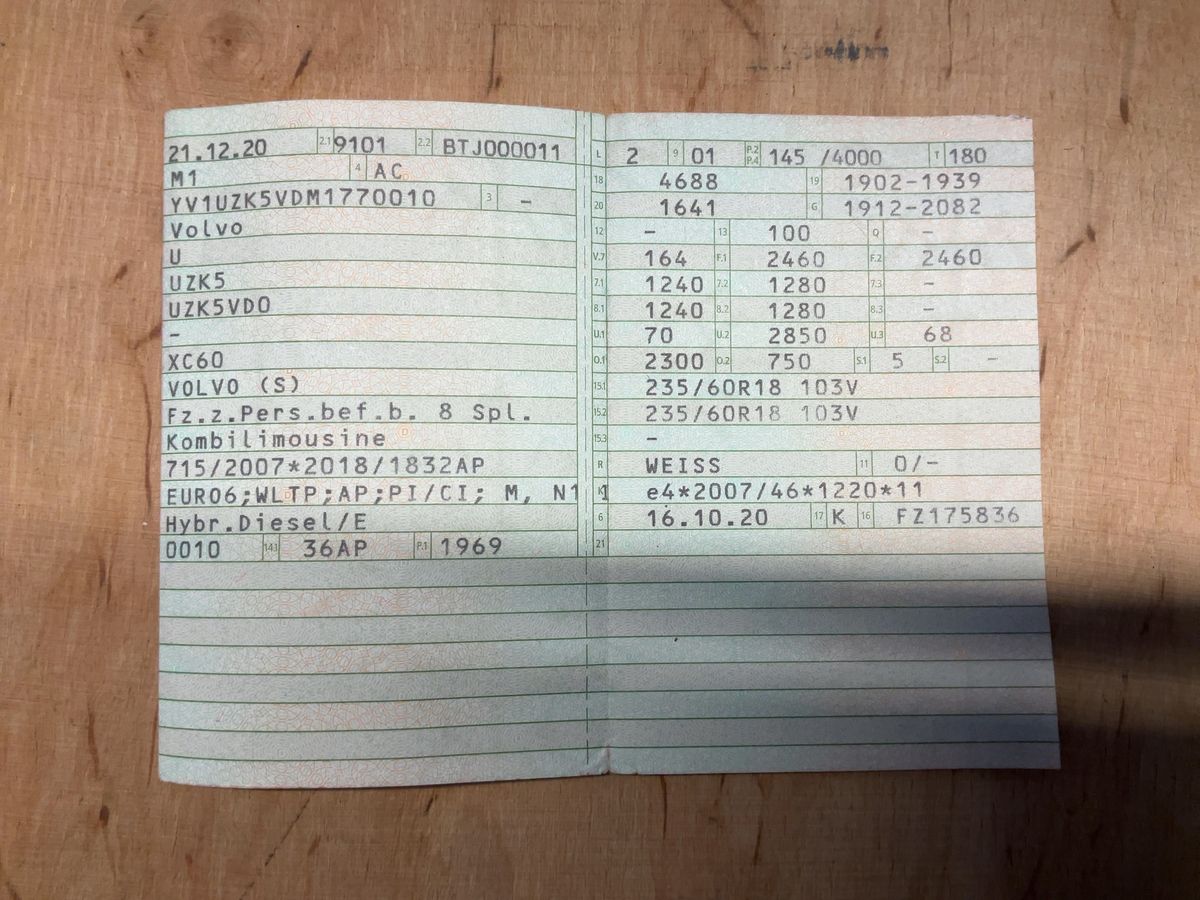 21.12.20 2.1 9101 2.2 BTJ000011
M1 4 AC
YV1UZK5VDM1770010 3 –
Volvo
U
UZK5
UZK5VD0
–
XC60
VOLVO (S)
Fz.z.Pers.bef.b. 8 Spl.
Kombilimousine
715/2007*2018/1832AP
EURO6;WLTP;AP;PI/CI; M, N1 I
Hybr.Diesel/E
0010 14.1 36AP P.1 1969
L 2 9 01 P.2 P.4 145 /4000 T 180
18 4688 19 1902-1939
20 1641 G 1912-2082
12 – 13 100 Q –
V.7 164 F.1 2460 F.2 2460
7.1 1240 7.2 1280 7.3 –
8.1 1240 8.2 1280 8.3 –
U.1 70 U.2 2850 U.3 68
O.1 2300 O.2 750 S.1 5 S.2 –
15.1 235/60R18 103V
15.2 235/60R18 103V
15.3 –
R WEISS 11 0/-
K e4*2007/46*1220*11
6 16.10.20 17 K 16 FZ175836
21